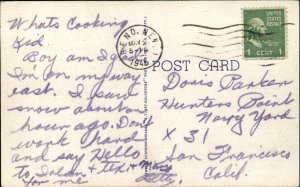 Whats Cooking
Kid
Boy am I
I'm on my way
east. I saw
snow about an
hour ago. Don't
work hard
and say Hello
to & Tex & 
for me
RENO, NEV.
MAY
5 PM
1946
POST CARD
1 CENT 1
Doris Parker
Hunters Point
Navy Yard
X 31
San Francisco
Calif.